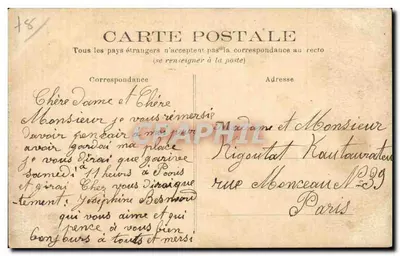 78
CARTE POSTALE
Tous les pays étrangers n'acceptent pas la correspondance au recto
(se renseigner à la poste)
Correspondance
Adresse
Chère Dame et Chère
Monsieur je vous remersie
davoir pencair a moi pour
avoir gardai ma place
je vous dirai que jarive
samedi a 11 heures a Paris
et girai Cher vous directque
tement: Josephine
qui vous aime et qui
pence à vous bien
bonjours à touts et mersi
Madame et Monsieur
Rigoutat Rautaurateur
rue Monceau No 39
Paris